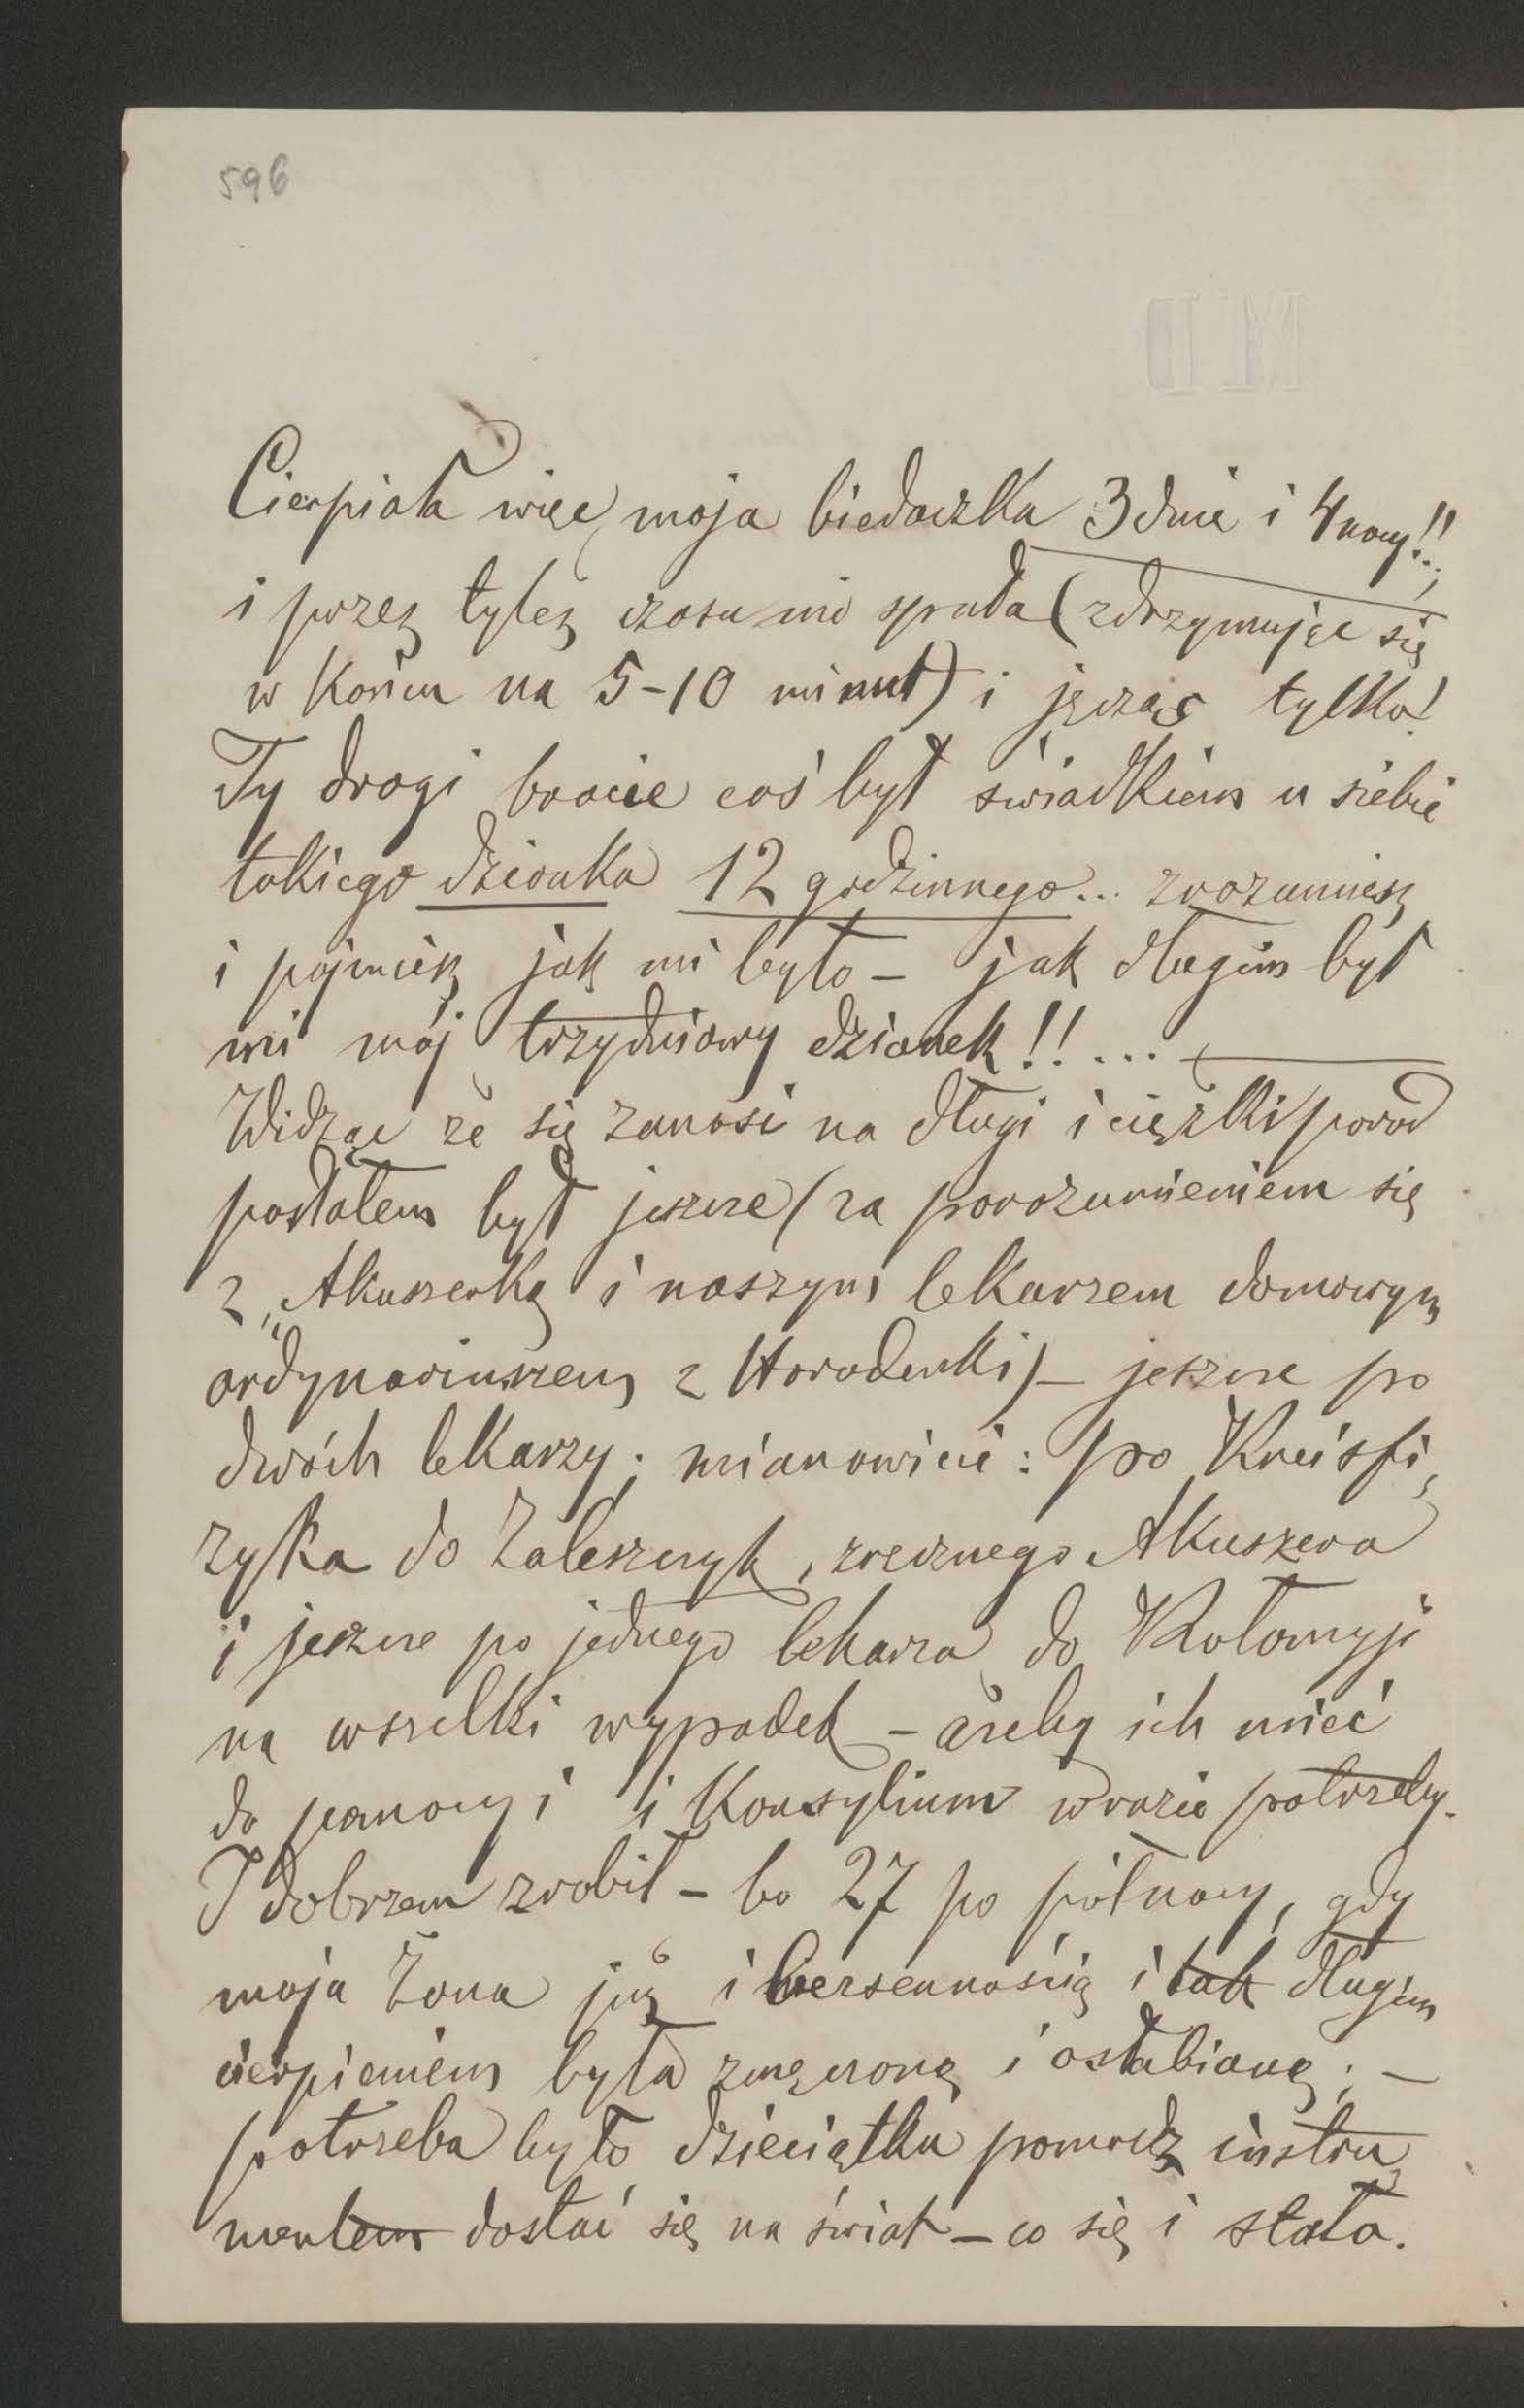 596
MD
Cierpiała więc moja biedaczka 3 dnie i 4 nocy!!..,
i przez tyleż czasu nie spała (zdrzymując się
w końcu na 5-10 minut) i jęcząc tylko!
Ty drogi bracie coś był świadkiem u siebie
takiego dzionka 12 godzinnego... zrozumiesz
i pojmiesz jak mi było – jak długim był
mi mój trzydniowy dzionek!!...
Widząc że się zanosi na długi i ciężki porod
posłałem był jeszcze (za porozumieniem się
z Akuszerką i naszym lekarzem domowym
ordynariuszem z Horodenki) – jeszcze po
dwóch lekarzy; mianowicie: po Kreisfi„
zyka do Zaleszczyk, zręcznego Akuszera
i jeszcze po jednego lekarza do Kołomyji
na wszelki wypadek – ażeby ich mieć
do pomocy i Konsylium w razie potrzeby.
I dobrzem zrobił – bo 27 po północy, gdy
moja Żona już i bezsennością i tak długim
cierpieniem była zmęczoną i osłabioną; –
potrzeba było dzieciątku pomódz instru„
mentem dostać się na świat – co się i stało.